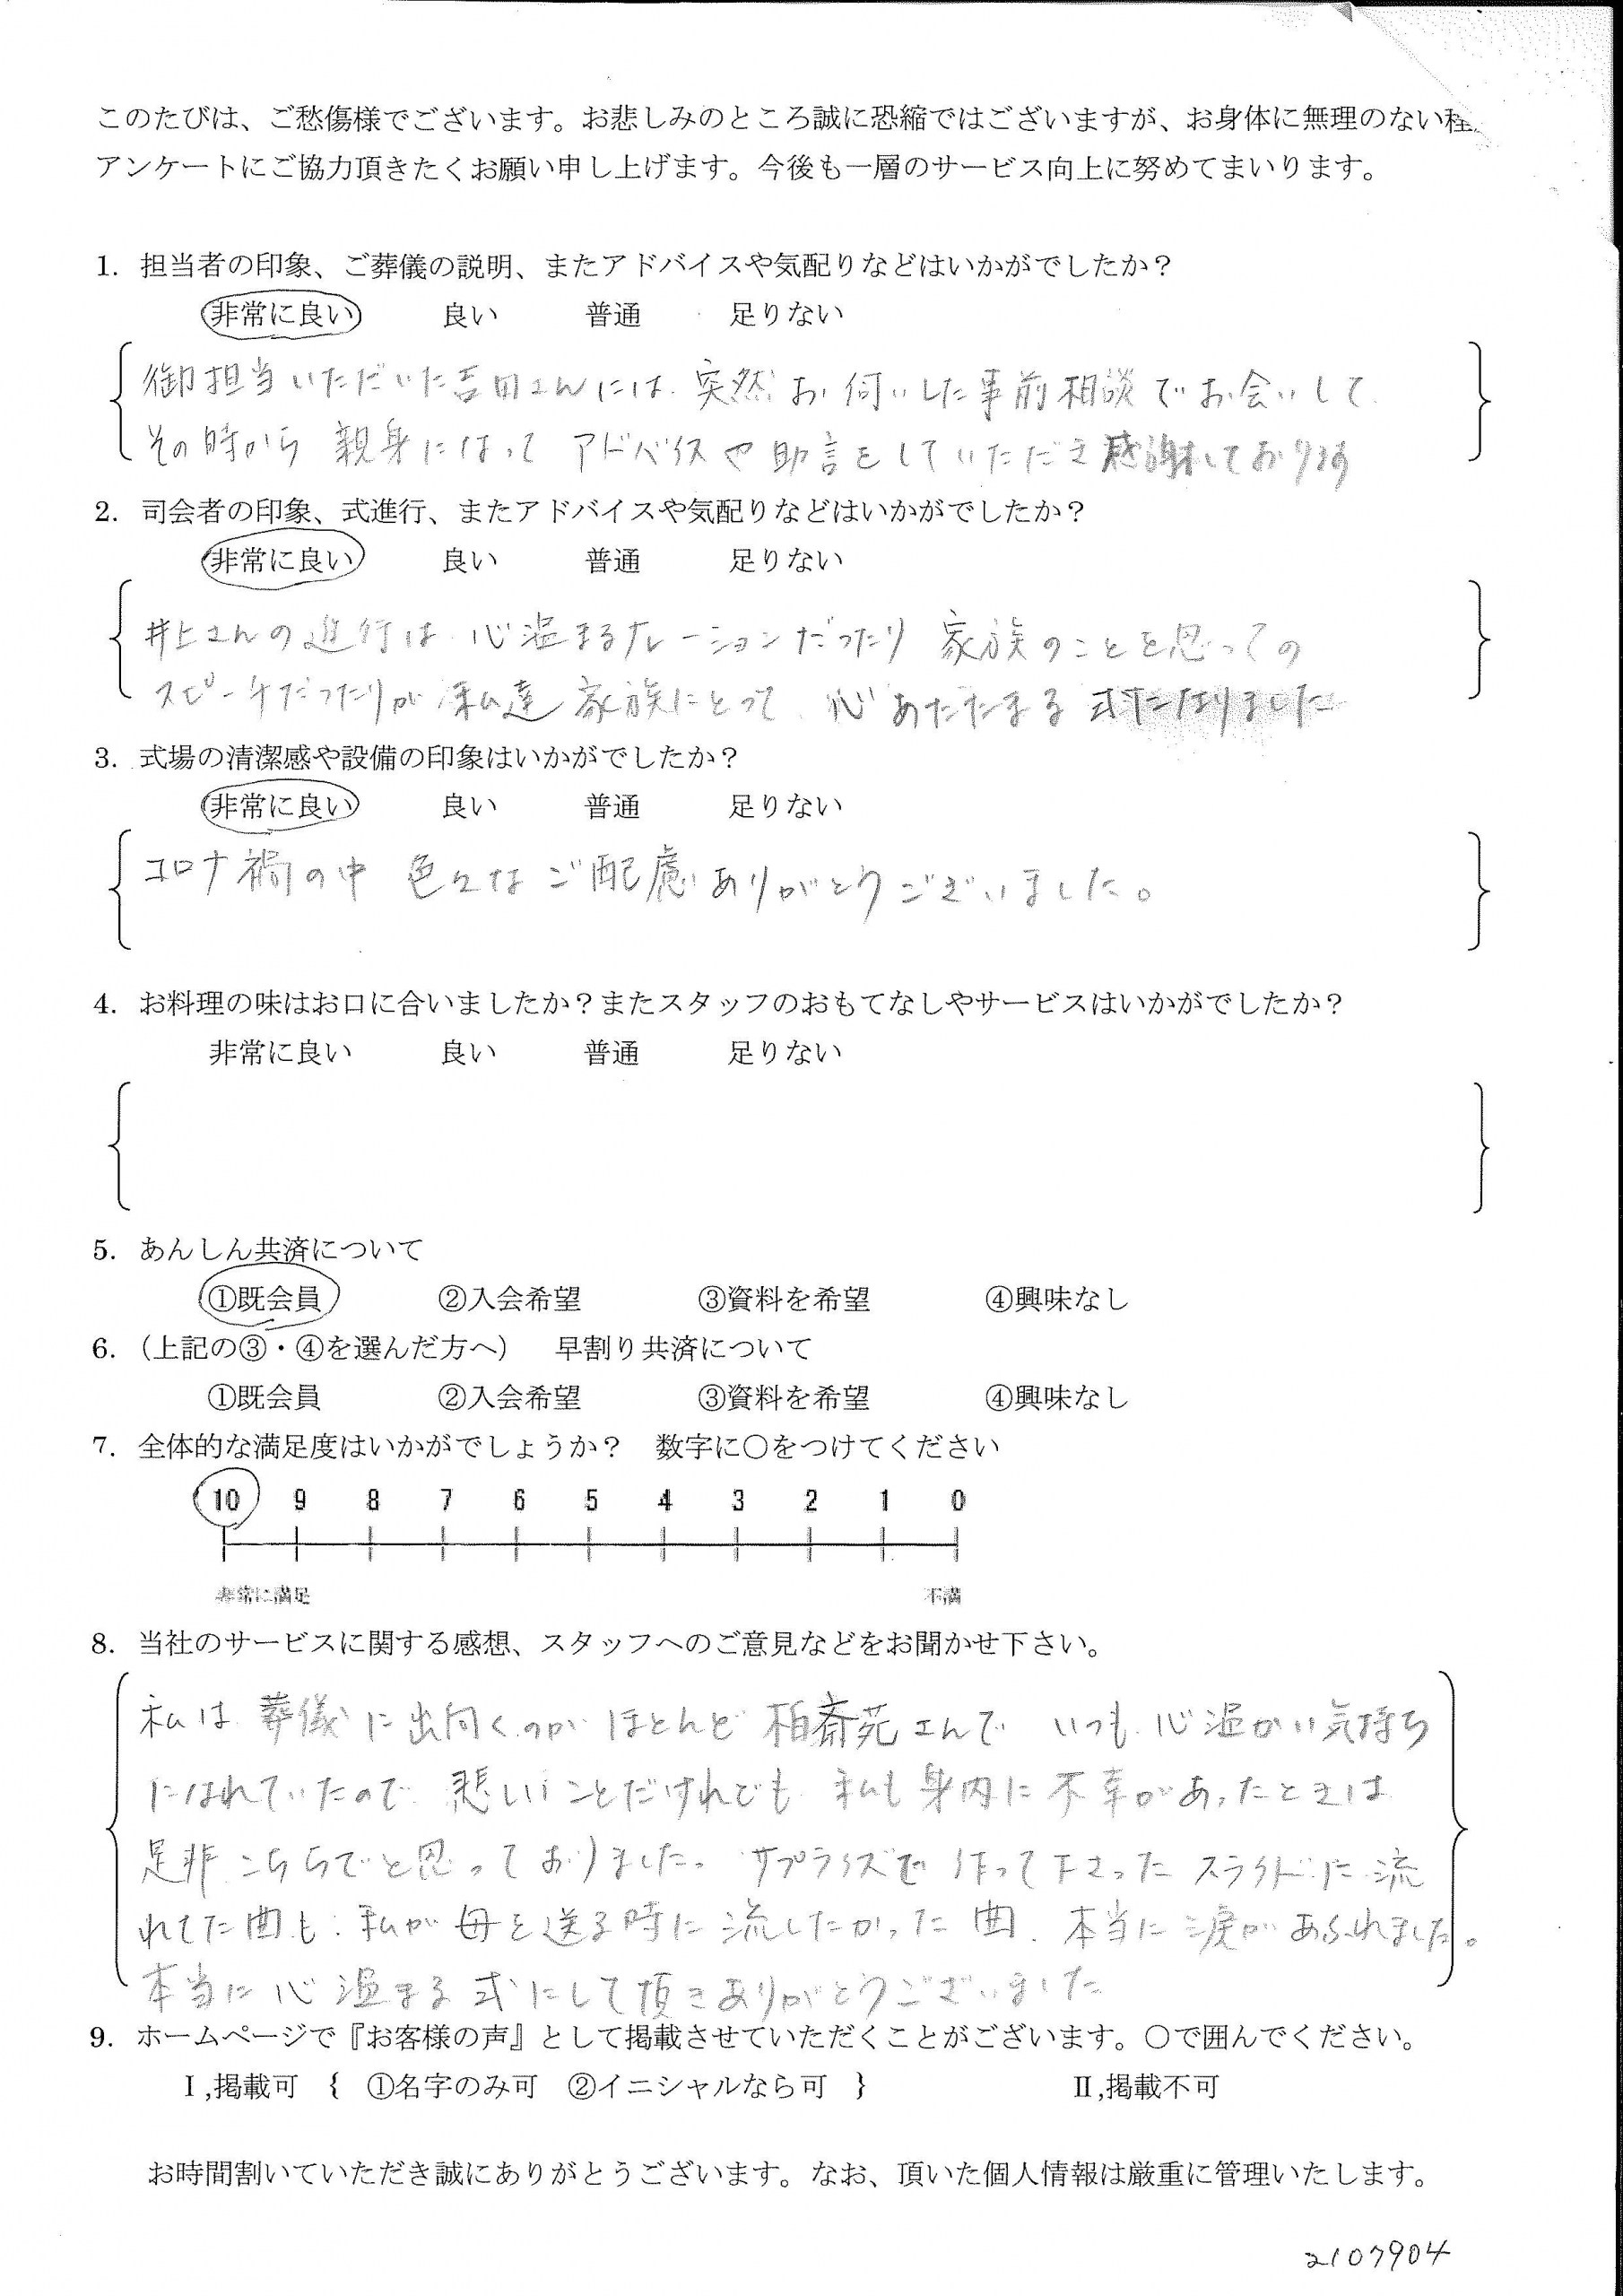 このたびは、ご愁傷様でございます。お悲しみのところ誠に恐縮ではございますが、お身体に無理のない程
アンケートにご協力頂きたくお願い申し上げます。今後も一層のサービス向上に努めてまいります。
1. 担当者の印象、ご葬儀の説明、またアドバイスや気配りなどはいかがでしたか？
非常に良い 良い 普通 足りない
御担当いただいた吉田さんには、突然お伺いした事前相談でお会いして
その時から 親身になって アドバイスや助言をしていただき感謝しております
2. 司会者の印象、式進行、またアドバイスや気配りなどはいかがでしたか？
非常に良い 良い 普通 足りない
井上さんの進行は 心温まるナレーションだったり 家族のことを思っての
スピーチだったりが 私達 家族にとって 心あたたまる 式になりました
3. 式場の清潔感や設備の印象はいかがでしたか？
非常に良い 良い 普通 足りない
コロナ禍の中 色々なご配慮ありがとうございました。
4. お料理の味はお口に合いましたか？またスタッフのおもてなしやサービスはいかがでしたか？
非常に良い 良い 普通 足りない
5. あんしん共済について
①既会員 ②入会希望 ③資料を希望 ④興味なし
6.（上記の③・④を選んだ方へ） 早割り共済について
①既会員 ②入会希望 ③資料を希望 ④興味なし
7. 全体的な満足度はいかがでしょうか？ 数字に○をつけてください
10 9 8 7 6 5 4 3 2 1 0
非常に満足 不満
8. 当社のサービスに関する感想、スタッフへのご意見などをお聞かせ下さい。
私は 葬儀に出向くのが ほとんど 柏斎苑さんで いつも 心温かい気持ち
になれていたので 悲しいことだけれども 私も身内に不幸があったときは
是非 こちらでと思っておりました。サプライズで 作って下さった スライドに流
れてた曲も 私が母を送る時に 流したかった曲 本当に涙があふれました。
本当に心温まる式にして頂きありがとうございました
9. ホームページで『お客様の声』として掲載させていただくことがございます。○で囲んでください。
Ⅰ,掲載可 { ①名字のみ可 ②イニシャルなら可 } Ⅱ,掲載不可
お時間割いていただき誠にありがとうございます。なお、頂いた個人情報は厳重に管理いたします。
2107904